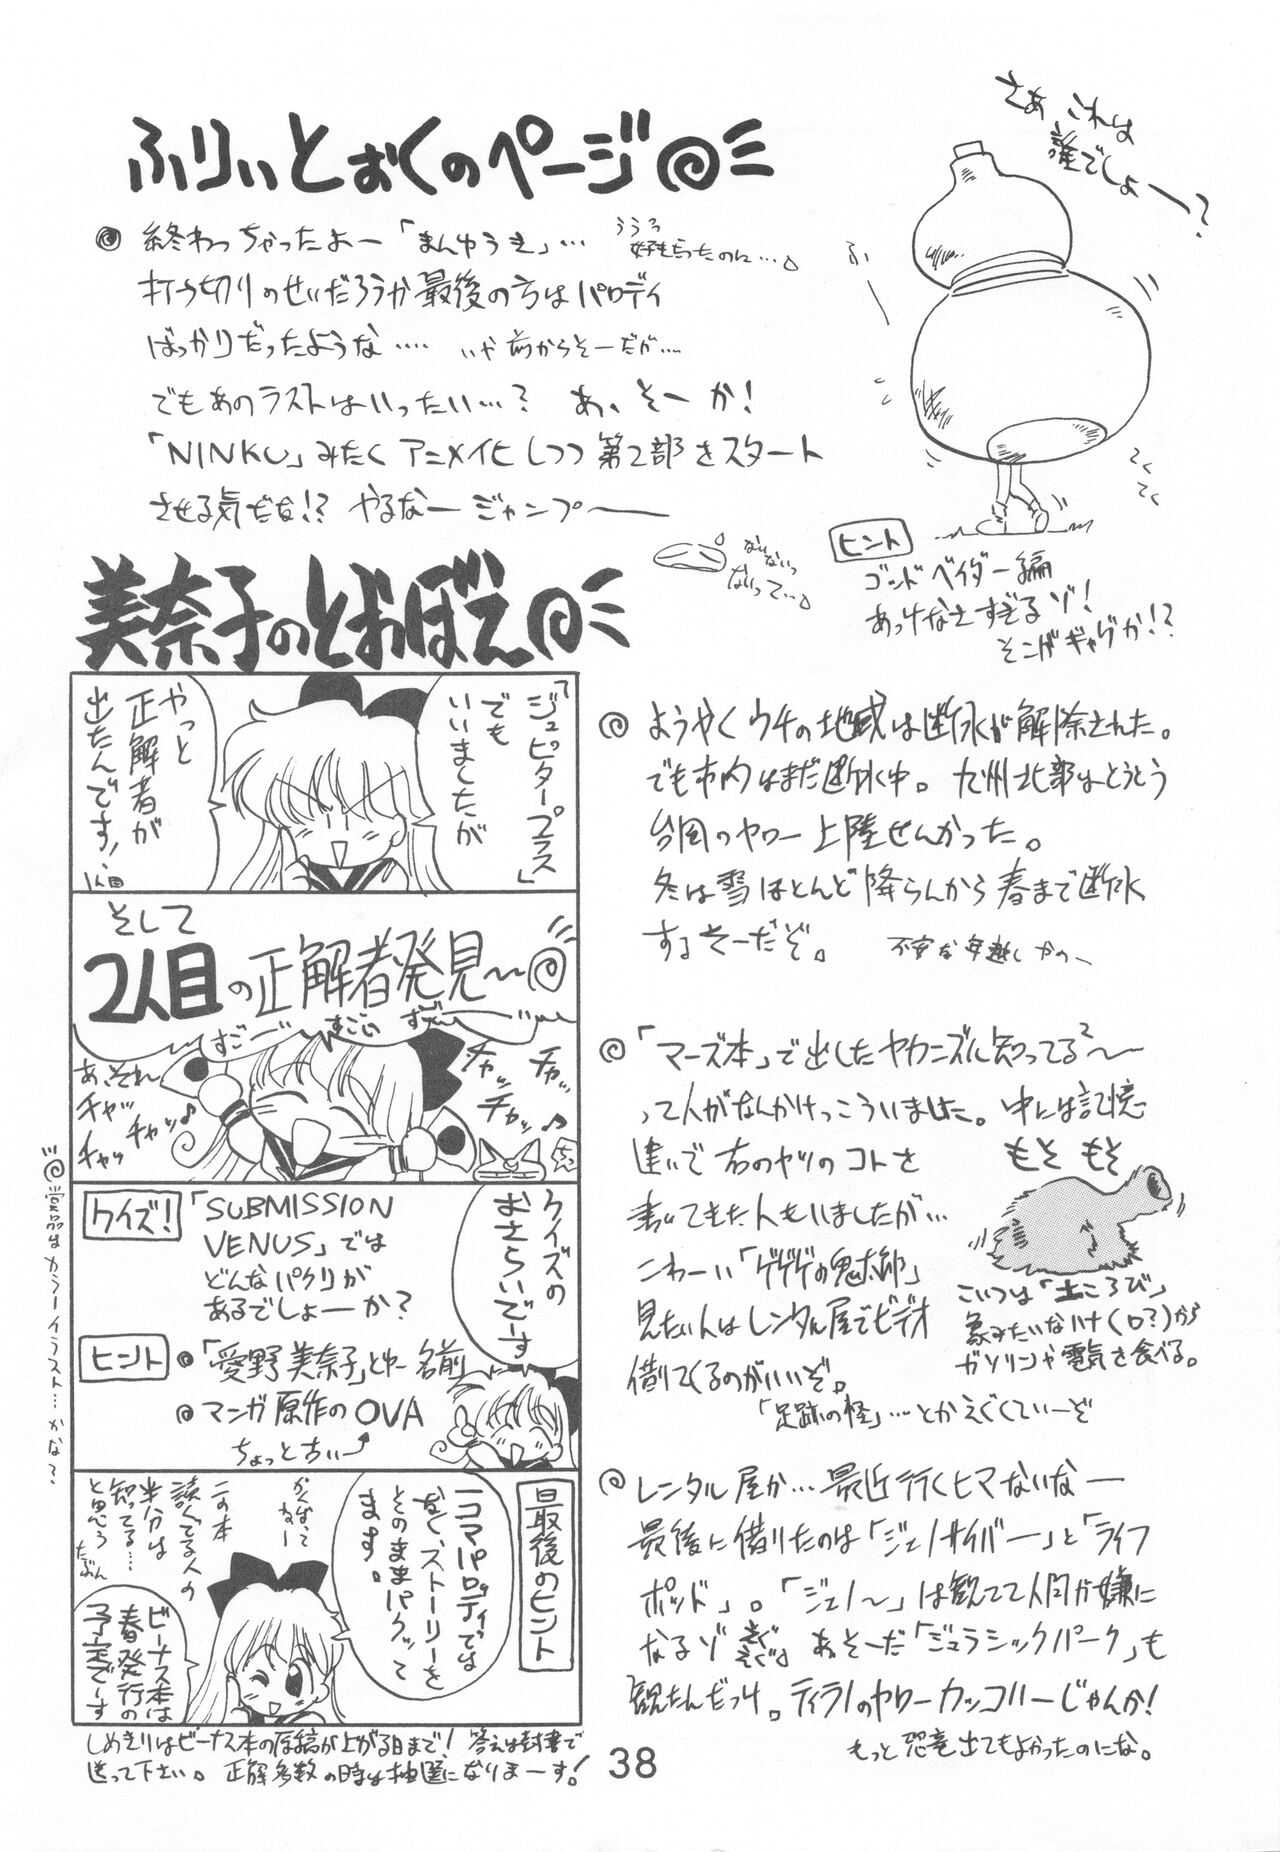 ふりぃとぉくのページ
さあ これは
誰でしょー？
終わっちゃったよー「まんゆうき」…
ううっ
好きだったのに…。
打ち切りのせいだろうか最後の方はパロディ
ばっかりだったような…. いや前からそーだが….
でもあのラストはいったい…？ あ、そーか！
「NINKU」みたく アニメイ化しつつ第2部をスタート
させる気だな!？ やるなージャンプ〜
ないないっ
ないって…。
ふぅ
てく
てく
ヒント
ゴッドベイダー編
あっけなさすぎるゾ！
そこがギャグか!？
美奈子のとおぼえ
「ジュピタープラス」
でも
いいましたが
やっと
正解者が
出たんです！
1人目
そして
2人目の正解者発見〜
すごー すごい すごー
あ、それ
チャッ
チャッ
チャッ
チャッ
チャッ
チャッ♪
クイズの
おさらいでーす
クイズ！
「SUBMISSION
VENUS」では
どんなパクリが
あるでしょーか？
ヒント
「愛野美奈子」とゆー名前
マンガ原作のOVA
ちょっと古い
最後のヒント
一コマパロディでは
なく、ストーリーを
そのままパクって
ます。
がんばって
ねー
この本
読んでる人の
半分は
知ってる…
と思う
たぶん
ビーナス本は
春発行の
予定でーす
賞品はカラーイラスト…かな？
しめきりはビーナス本の原稿が上がる日まで！ 答えは封書で
送って下さい。 正解多数の時は抽選になりまーす！
ようやくウチの地域は断水が解除された。
でも市内はまだ断水中。 九州北部はとうとう
台風のヤロー上陸せんかった。
冬は雪ほとんど降らんから春まで断水
すりそーだぞ。 不安な年越しかのー
「マーズ本」で出したヤカンズル知ってる？〜
って人がなんかけっこういました。中には記憶
違いで右のヤツのコトを
書いてきた人もいましたが…
こわーい「ゲゲゲの鬼太郎」
見たい人はレンタル屋でビデオ
借りてくるのがいいぞ。
「足跡の怪」…とかえぐくていーぞ
もそ もそ
こいつは「土ころび」
象みたいなハナ(口？)から
ガソリンや電気を食べる。
レンタル屋か…最近行くヒマないなー
最後に借りたのは「ジェノサイバー」と「ライフ
ポッド」。「ジェノ〜」は観てて人間が嫌に
なるゾ あそーだ「ジュラシックパーク」も
観たんだっけ。ティラノのヤローカッコいーじゃんか！
もっと恐竜出てもよかったのにな。
38